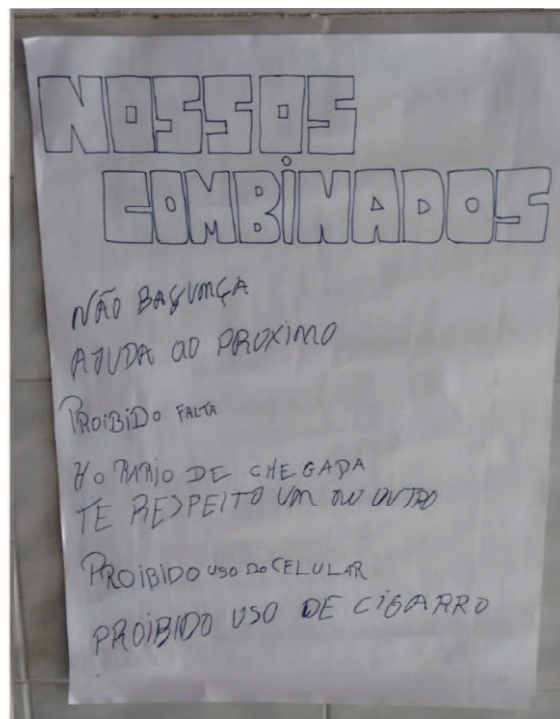 NOSSOS
COMBINADOS
NÃO BAGUNÇA
AJUDA aO PROXIMO
PROIBIDO FALTA
HORARIO DE CHEGADA
TE RESPEITO UM OUTRO
PROIBIDO USO DO CELULAR
PROIBIDO USO DE CIGARRO